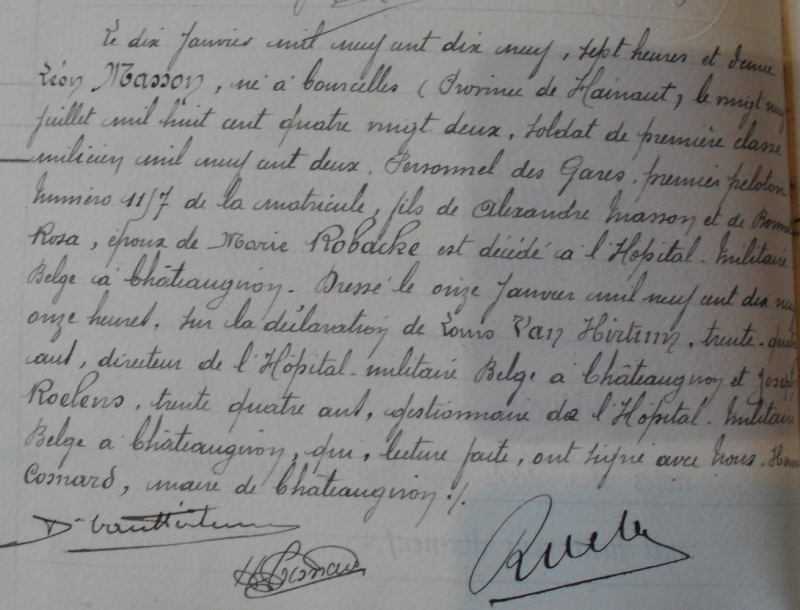 Le dix Janvier mil neuf cent dix neuf, sept heures et demie
Léon Masson, né à Courcelles (Province de Hainaut) le vingt neuf
juillet mil huit cent quatre vingt deux, soldat de première classe
milicien mil neuf cent deux. Personnel des Gares. premier peloton
Numéro 11/7 de la matricule, fils de Alexandre Masson et de
Rosa, époux de Marie Robacke est décédé à l'Hôpital-Militaire
Belge à Châteaugiron. Dressé le onze Janvier mil neuf cent dix neuf
onze heures, sur la déclaration de Louis Van Hirtum, trente-quatre
ans, directeur de l'Hôpital-militaire Belge à Châteaugiron et Joseph
Roelens, trente quatre ans, gestionnaire de l'Hôpital-Militaire
Belge à Châteaugiron, qui, lecture faite, ont signé avec Nous, Henri
Cosnard, maire de Châteaugiron ./.